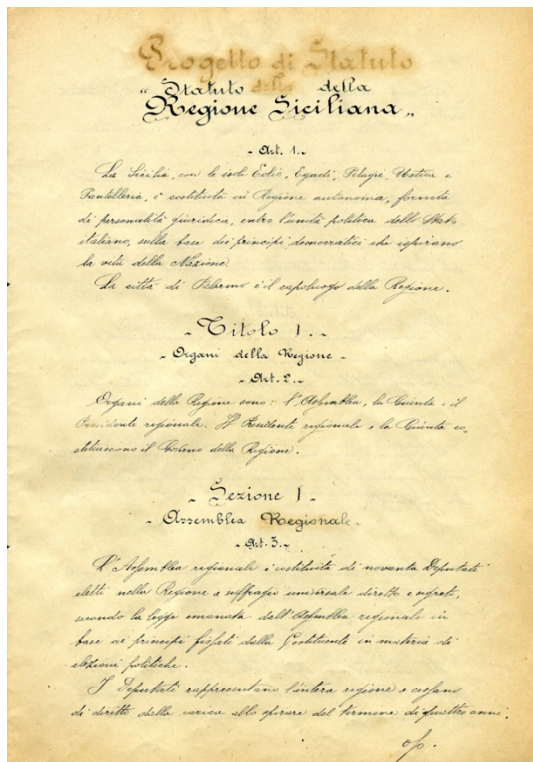 Progetto di Statuto
della
"Statuto della
Regione Siciliana"
- Art. 1. -
La Sicilia, con le isole Eolie, Egadi, Pelagie, Ustica e
Pantelleria, è costituita in Regione autonoma, fornita
di personalità giuridica, entro l'unità politica dello Stato
italiano, sulla base dei principi democratici che ispirano
la vita della Nazione.
La città di Palermo è il capoluogo della Regione.
- Titolo 1. -
- Organi della Regione -
- Art. 2. -
Organi della Regione sono: l'Assemblea, la Giunta e il
Presidente regionale. Il Presidente regionale e la Giunta co-
stituiscono il Governo della Regione.
- Sezione 1 -
- Assemblea Regionale -
- Art. 3. -
L'Assemblea regionale è costituita di novanta Deputati
eletti nella Regione a suffragio universale diretto e segreto,
secondo la legge emanata dall'Assemblea regionale in
base ai principi fissati dalla Costituente in materia di
elezioni politiche.
I Deputati rappresentano l'intera regione e cessano
di diritto dalla carica allo spirare del termine di quattro anni.